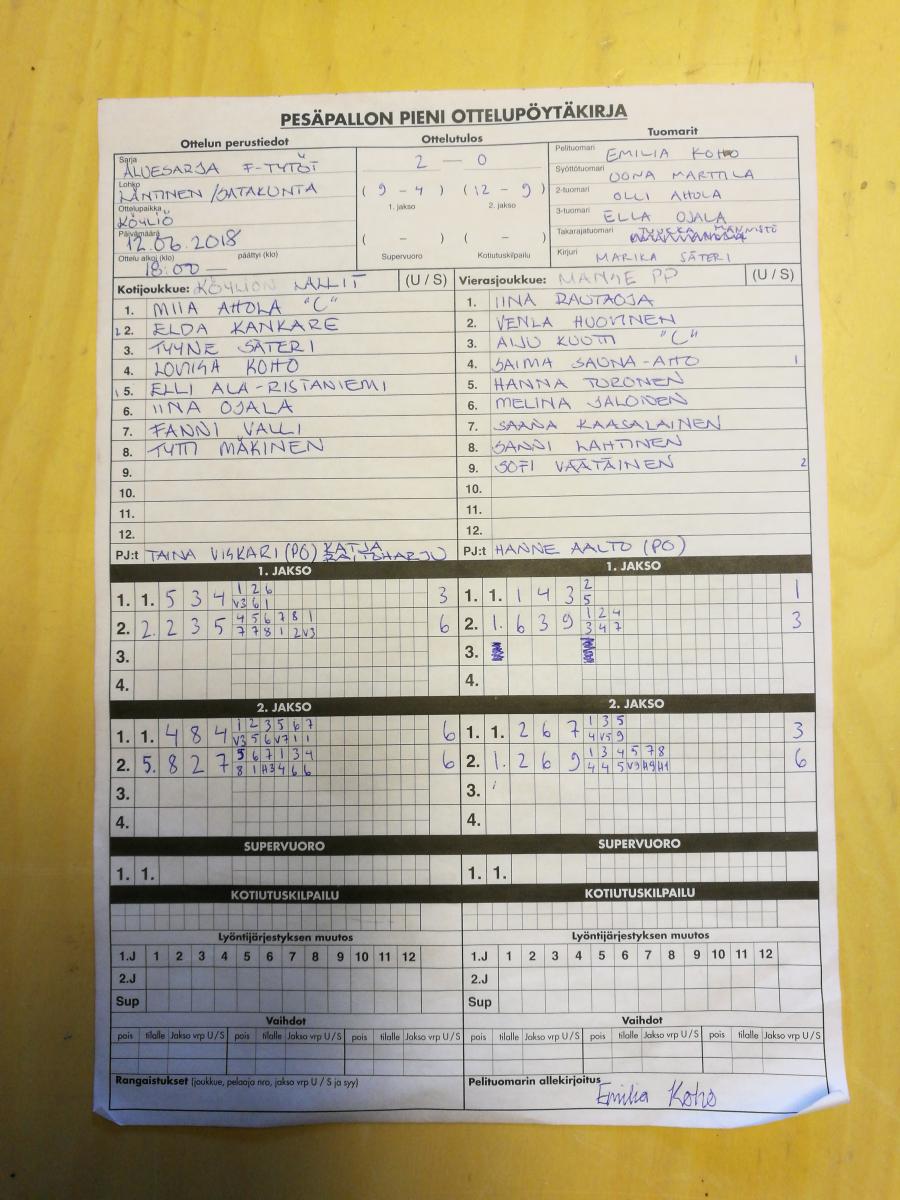 PESÄPALLON PIENI OTTELUPÖYTÄKIRJA
Ottelun perustiedot
Sarja
ALUESARJA F-TYTÖT
Lohko
LÄNTINEN /SATAKUNTA
Ottelupaikka
KÖYLIÖ
Päivämäärä
12.06.2018
Ottelu alkoi (klo) päättyi (klo)
18:00 —
Ottelutulos
2 — 0
( 9 - 4 ) ( 12 - 9 )
1. jakso 2. jakso
( - ) ( - )
Supervuoro Kotiutuskilpailu
Tuomarit
Pelituomari EMILIA KOHO
Syöttötuomari OONA MARTTILA
2-tuomari OLLI AHOLA
3-tuomari ELLA OJALA
Takarajatuomari MÄNNISTÖ
Kirjuri MARIKA SÄTERI
Kotijoukkue: KÖYLIÖN LALLIT (U / S)
1. MIIA AHOLA "C"
1 2. ELDA KANKARE
3. TYYNE SÄTERI
4. LOVIISA KOHO
1 5. ELLI ALA-RISTANIEMI
6. IINA OJALA
7. FANNI VALLI
8. TYTTI MÄKINEN
9.
10.
11.
12.
PJ:t TAINA VISKARI (PO) KATJA RAITOHARJU
Vierasjoukkue: MANSE PP (U / S)
1. IINA RAUTAOJA
2. VENLA HUOVINEN
3. AIJU KUUTTI "C"
4. SAIMA SAUNA-AHO 1
5. HANNA TURONEN
6. MELINA JALONEN
7. SAANA KAASALAINEN
8. SANNI LAHTINEN
9. SOFI VÄÄTÄINEN 2
10.
11.
12.
PJ:t HANNE AALTO (PO)
1. JAKSO
1. 1. 5 3 4 1 2 6 3
V3 6 1
2. 2. 2 3 5 4 5 6 7 8 1 6
7 7 8 1 2 V3
3.
4.
1. JAKSO
1. 1. 1 4 3 2 1
5
2. 1. 6 3 9 1 2 4 3
3 4 7
3.
4.
2. JAKSO
1. 1. 4 8 4 1 2 3 5 6 7 6
V3 5 6 V7 1 1
2. 5. 8 2 7 5 6 7 1 3 4 6
8 1 H3 4 6 6
3.
4.
2. JAKSO
1. 1. 2 6 7 1 3 5 3
4 V5 9
2. 1. 2 6 9 1 3 4 5 7 8 6
4 4 5 V9 H9 H1
3.
4.
SUPERVUORO
1. 1.
SUPERVUORO
1. 1.
KOTIUTUSKILPAILU
KOTIUTUSKILPAILU
Lyöntijärjestyksen muutos
1.J 1 2 3 4 5 6 7 8 9 10 11 12
2.J
Sup
Lyöntijärjestyksen muutos
1.J 1 2 3 4 5 6 7 8 9 10 11 12
2.J
Sup
Vaihdot
pois tilalle Jakso vrp U / S pois tilalle Jakso vrp U / S pois tilalle Jakso vrp U / S
Vaihdot
pois tilalle Jakso vrp U / S pois tilalle Jakso vrp U / S pois tilalle Jakso vrp U / S
Rangaistukset (joukkue, pelaaja nro, jakso vrp U / S ja syy)
Pelituomarin allekirjoitus
Emilia Koho